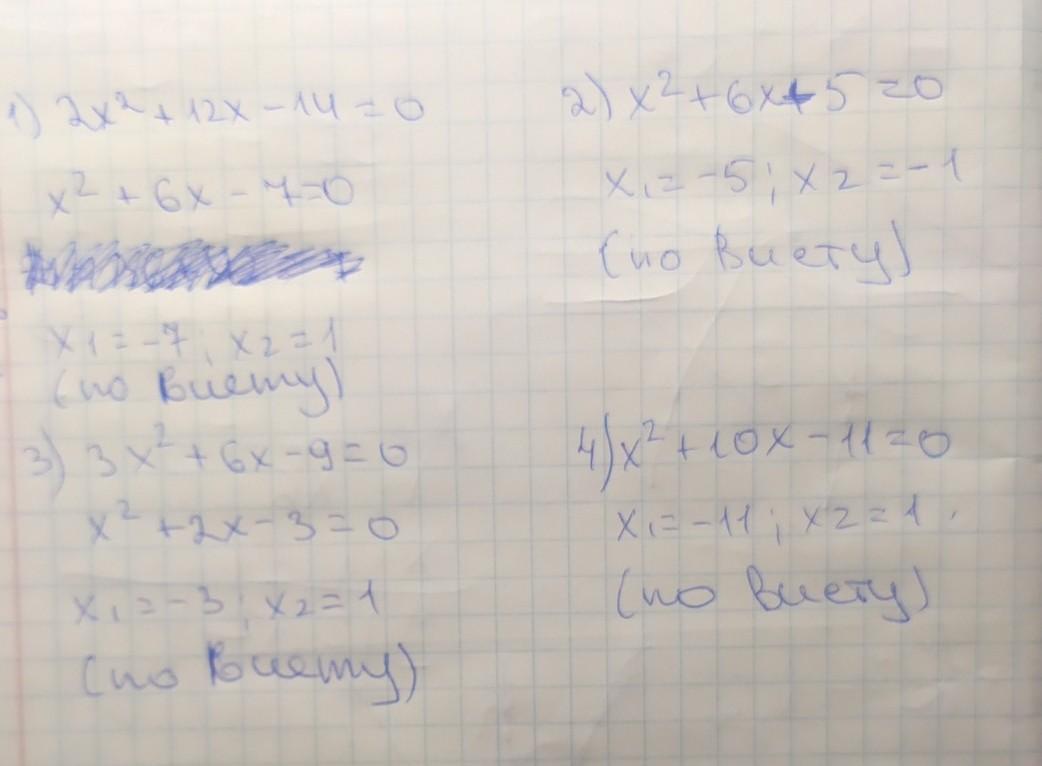 1) 2x² + 12x - 14 = 0
x² + 6x - 7 = 0
x1 = -7; x2 = 1
(по Виету)
2) x² + 6x + 5 = 0
x1 = -5; x2 = -1
(по Виету)
3) 3x² + 6x - 9 = 0
x² + 2x - 3 = 0
x1 = -3; x2 = 1
(по Виету)
4) x² + 10x - 11 = 0
x1 = -11; x2 = 1.
(по Виету)